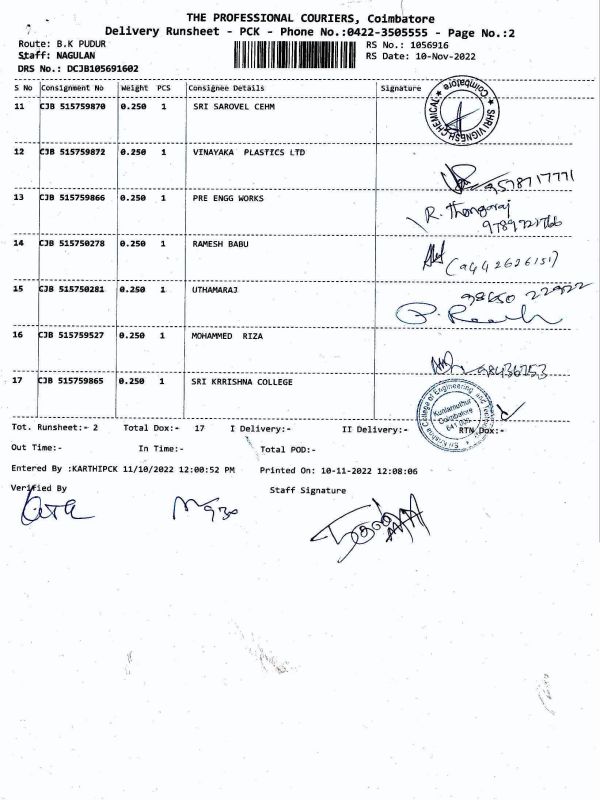 THE PROFESSIONAL COURIERS, Coimbatore
Delivery Runsheet - PCK - Phone No.:0422-3505555 - Page No.:2
Route: B.K PUDUR
RS No.: 1056916
Staff: NAGULAN
RS Date: 10-Nov-2022
DRS No.: DCJB105691602
S No Consignment No Weight PCS Consignee Details Signature
11 CJB 515759870 0.250 1 SRI SAROVEL CEHM
SHRI VIGNESH CHEMICAL ★ Coimbatore ★
12 CJB 515759872 0.250 1 VINAYAKA PLASTICS LTD
9578717771
13 CJB 515759866 0.250 1 PRE ENGG WORKS
R. Thangaraj
14 CJB 515750278 0.250 1 RAMESH BABU
(9442626151)
15 CJB 515750281 0.250 1 UTHAMARAJ
98650 22922
16 CJB 515759527 0.250 1 MOHAMMED RIZA
17 CJB 515759865 0.250 1 SRI KRRISHNA COLLEGE
Sri Krishna College of Engineering and
Kuniamuthur
Coimbatore
641 008
Tot. Runsheet:- 2 Total Dox:- 17 I Delivery:- II Delivery:- RTN Dox:-
Out Time:- In Time:- Total POD:-
Entered By :KARTHIPCK 11/10/2022 12:00:52 PM Printed On: 10-11-2022 12:08:06
Verified By Staff Signature